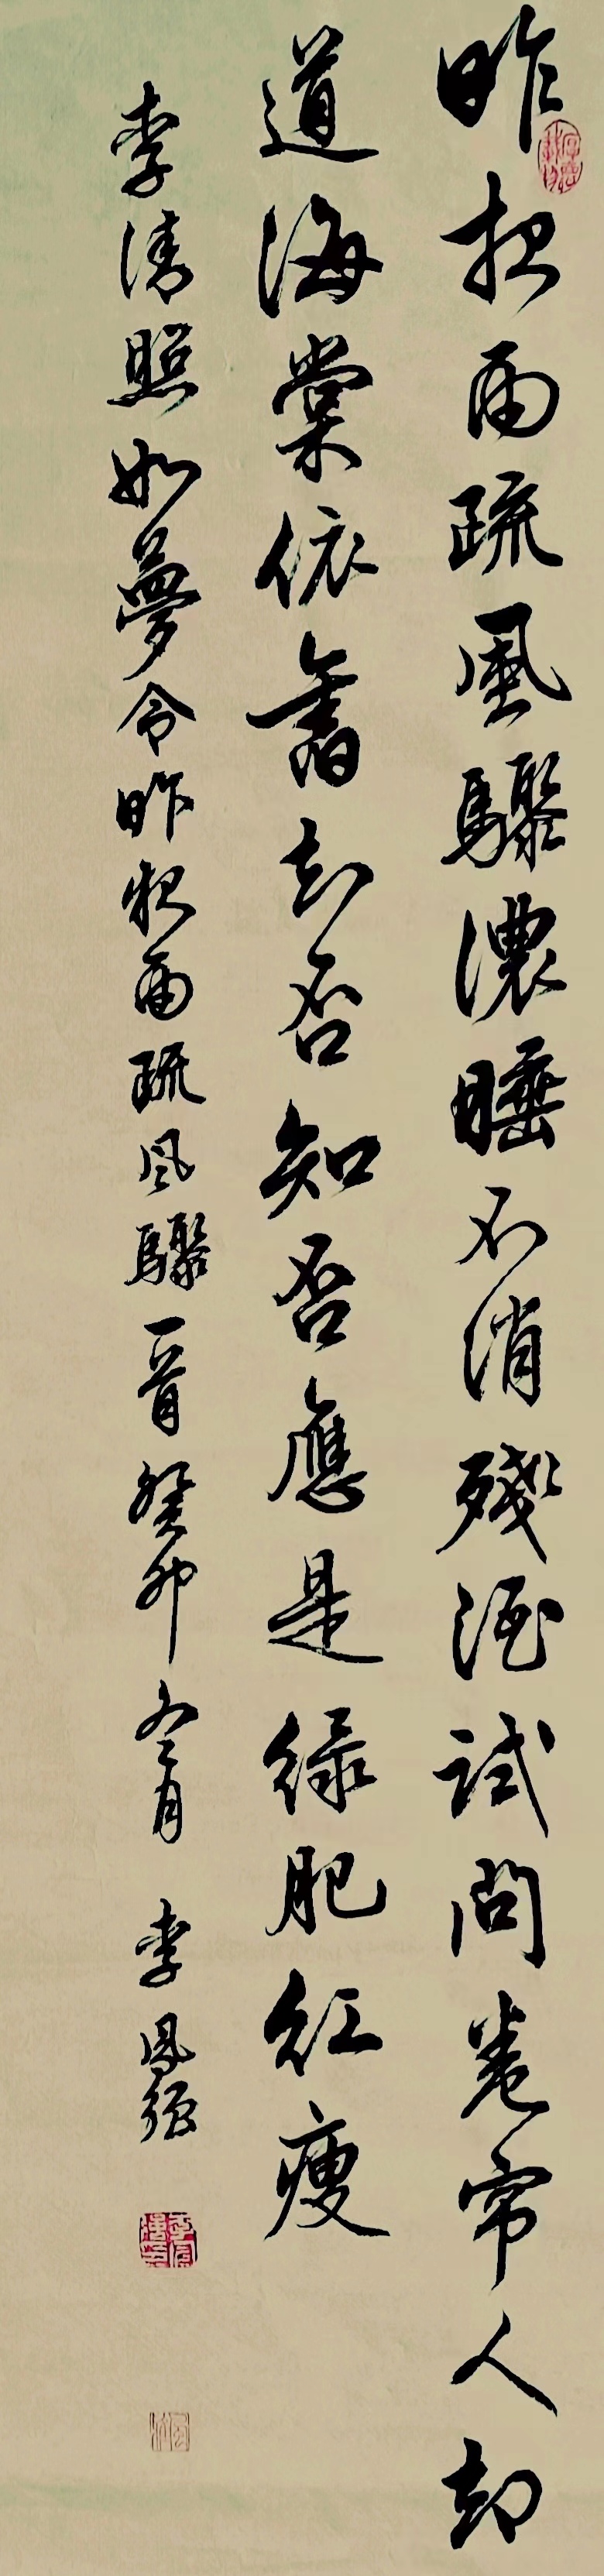 昨夜雨疏風驟濃睡不消殘酒試問卷帘人却
道海棠依舊知否知否應是綠肥紅瘦
李清照如夢令昨夜雨疏風驟一首癸卯冬月 李鳳強